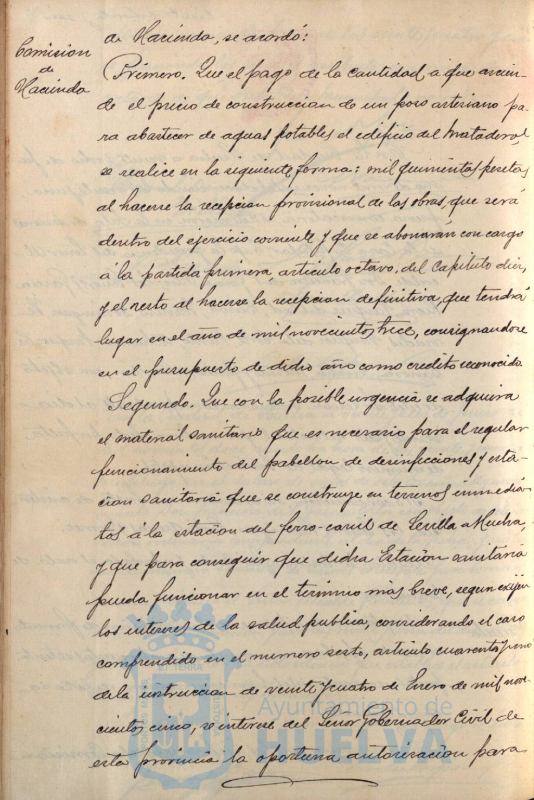 de Hacienda, se acordó:
Comision
de
Hacienda
Primero. Que el pago de la cantidad a que ascien-
de el precio de construccion de un poso artesiano pa-
ra abastecer de aguas potables el edificio del Matadero,
se realice en la siguiente forma: mil quinientas pesetas
al hacerse la recepcion provisional de las obras, que será
dentro del ejercicio corriente y que se abonarán con cargo
á la partida primera, artículo octavo, del Capitulo diez,
y el resto al hacerse la recepcion definitiva, que tendrá
lugar en el año de mil novecientos trece, consignandose
en el presupuesto de dicho año como credito reconocido.
Segundo. Que con la posible urgencia se adquiera
el material sanitario que es necesario para el regular
funcionamiento del pabellon de desinfecciones y esta-
cion sanitaria que se construye en terrenos inmedia-
tos á la estacion del ferro-carril de Sevilla a Huelva,
y que para conseguir que dicha Estacion sanitaria
pueda funcionar en el termino más breve, segun exijen
los intereses de la salud publica, considerando el caso
comprendido en el numero sesto, artículo cuarenta y uno
de la instruccion de veinte y cuatro de Enero de mil nove-
cientos cinco, se interese del Señor Gobernador Civil de
esta provincia la oportuna autorizacion para
Ayuntamiento de
HUELVA